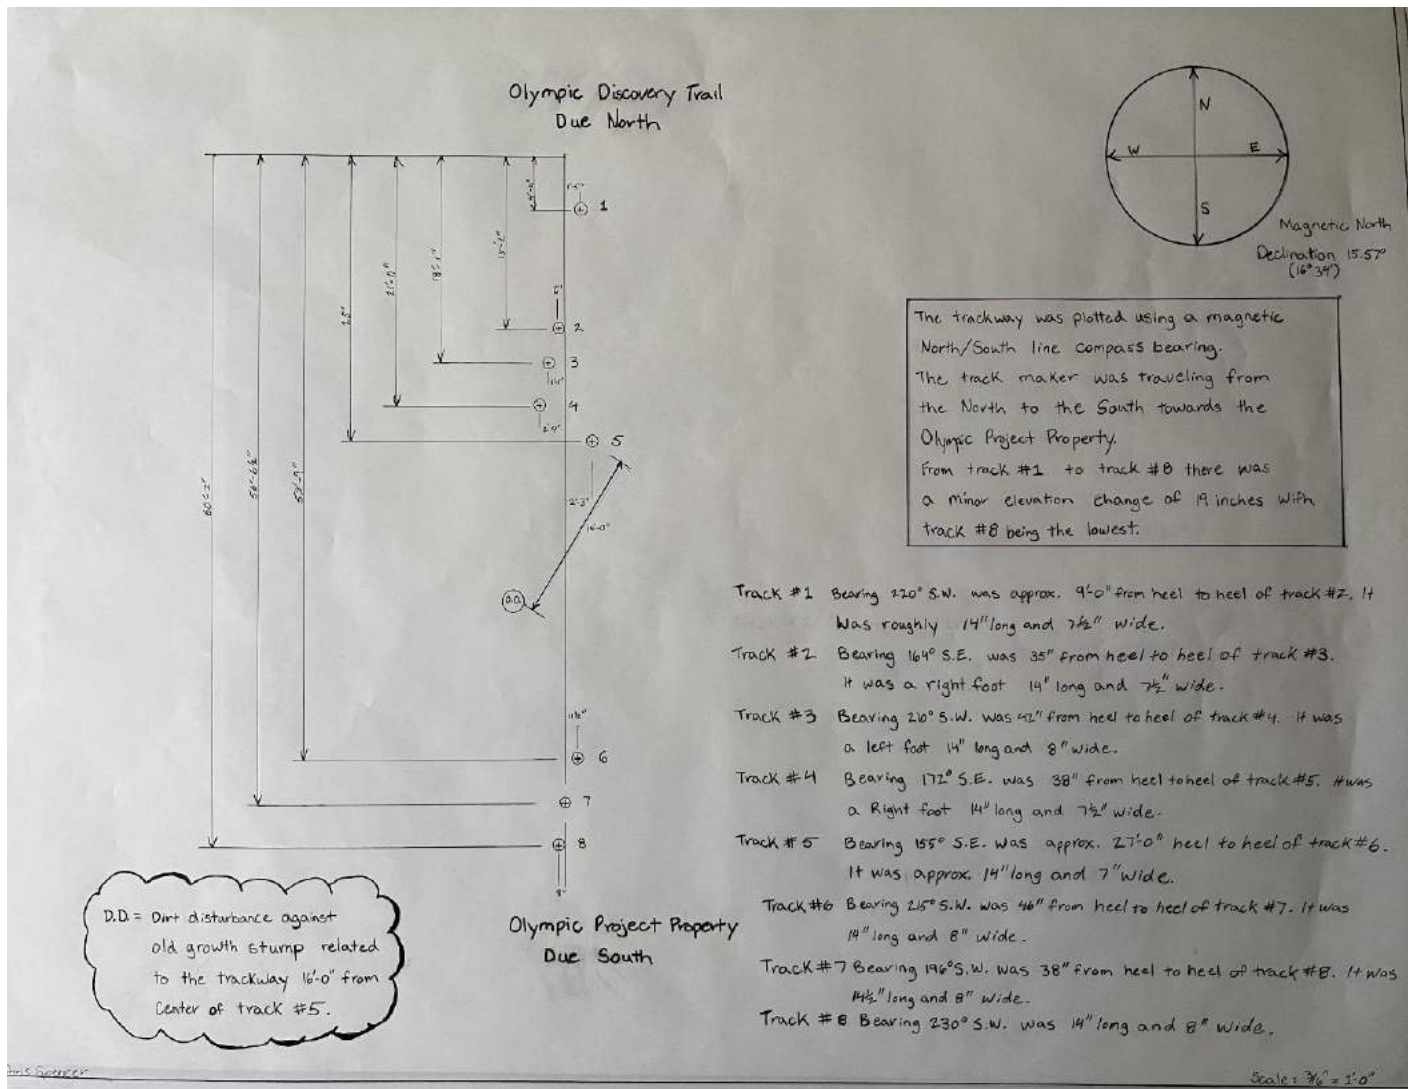 Olympic Discovery Trail
Due North
N
W
E
S
Magnetic North
Declination 15.57°
(16° 34')
1
15'-2"
18'-1"
2
3
4
2'-4"
5
2'-3"
16'-0"
D.D.
60'-2"
56'-6½"
52'-9"
11½"
6
7
8
8"
The trackway was plotted using a magnetic
North/South line compass bearing.
The track maker was traveling from
the North to the South towards the
Olympic Project Property.
From track #1 to track #8 there was
a minor elevation change of 19 inches with
track #8 being the lowest.
Track #1 Bearing 220° S.W. was approx. 9'-0" from heel to heel of track #2. It
was roughly 14" long and 7½" wide.
Track #2 Bearing 164° S.E. was 35" from heel to heel of track #3.
It was a right foot 14" long and 7½" wide.
Track #3 Bearing 210° S.W. was 42" from heel to heel of track #4. It was
a left foot 14" long and 8" wide.
Track #4 Bearing 172° S.E. was 38" from heel to heel of track #5. It was
a Right foot 14" long and 7½" wide.
Track #5 Bearing 155° S.E. was approx. 27'-0" heel to heel of track #6.
It was approx. 14" long and 7" wide.
Track #6 Bearing 215° S.W. was 46" from heel to heel of track #7. It was
14" long and 8" wide.
Track #7 Bearing 196° S.W. was 38" from heel to heel of track #8. It was
14½" long and 8" wide.
Track #8 Bearing 230° S.W. was 14" long and 8" wide.
D.D. = Dirt disturbance against
old growth stump related
to the trackway 16'-0" from
Center of track #5.
Olympic Project Property
Due South
Chris Spencer
Scale = 3/16" = 1'-0"